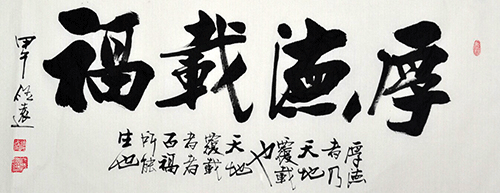 厚德載福
厚德
者乃
天地
覆載
也
天地
覆載
者者
百福
所能
生也
甲午